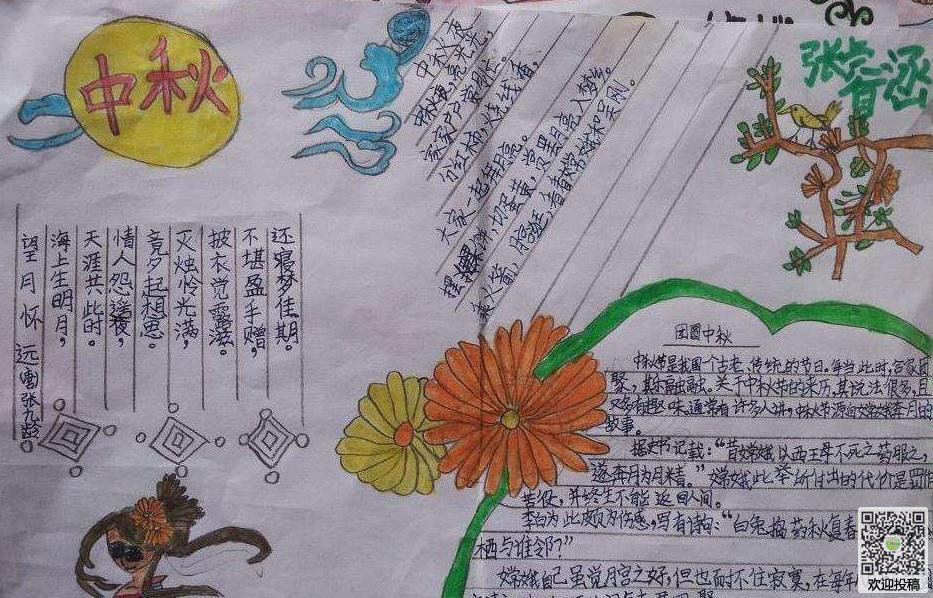 中秋
中秋夜
中秋夜，亮光光，
家家户户赏月忙。
大家一起拜月亮。
张
涵
望月怀远 张九龄
海上生明月，
天涯共此时。
情人怨遥夜，
竟夕起相思。
灭烛怜光满，
披衣觉露滋。
不堪盈手赠，
还寝梦佳期。
团圆中秋
中秋节是我国个古老、传统的节日，每当此时，各家团
聚，其乐融融。关于中秋节的来历，其说法很多，且
又多有趣味，通常有许多人讲，中秋节源自嫦娥奔月的
故事。
据史书记载：“昔嫦娥以西王母不死之药服之，
遂奔月为月精。”嫦娥此举所付出的代价是罚作
苦役，并终生不能返回人间。
李白为此颇为伤感，写有诗句：“白兔捣药秋复春
栖与谁邻？”
嫦娥自己虽觉月宫之好，但也耐不住寂寞，在每年
欢迎投稿